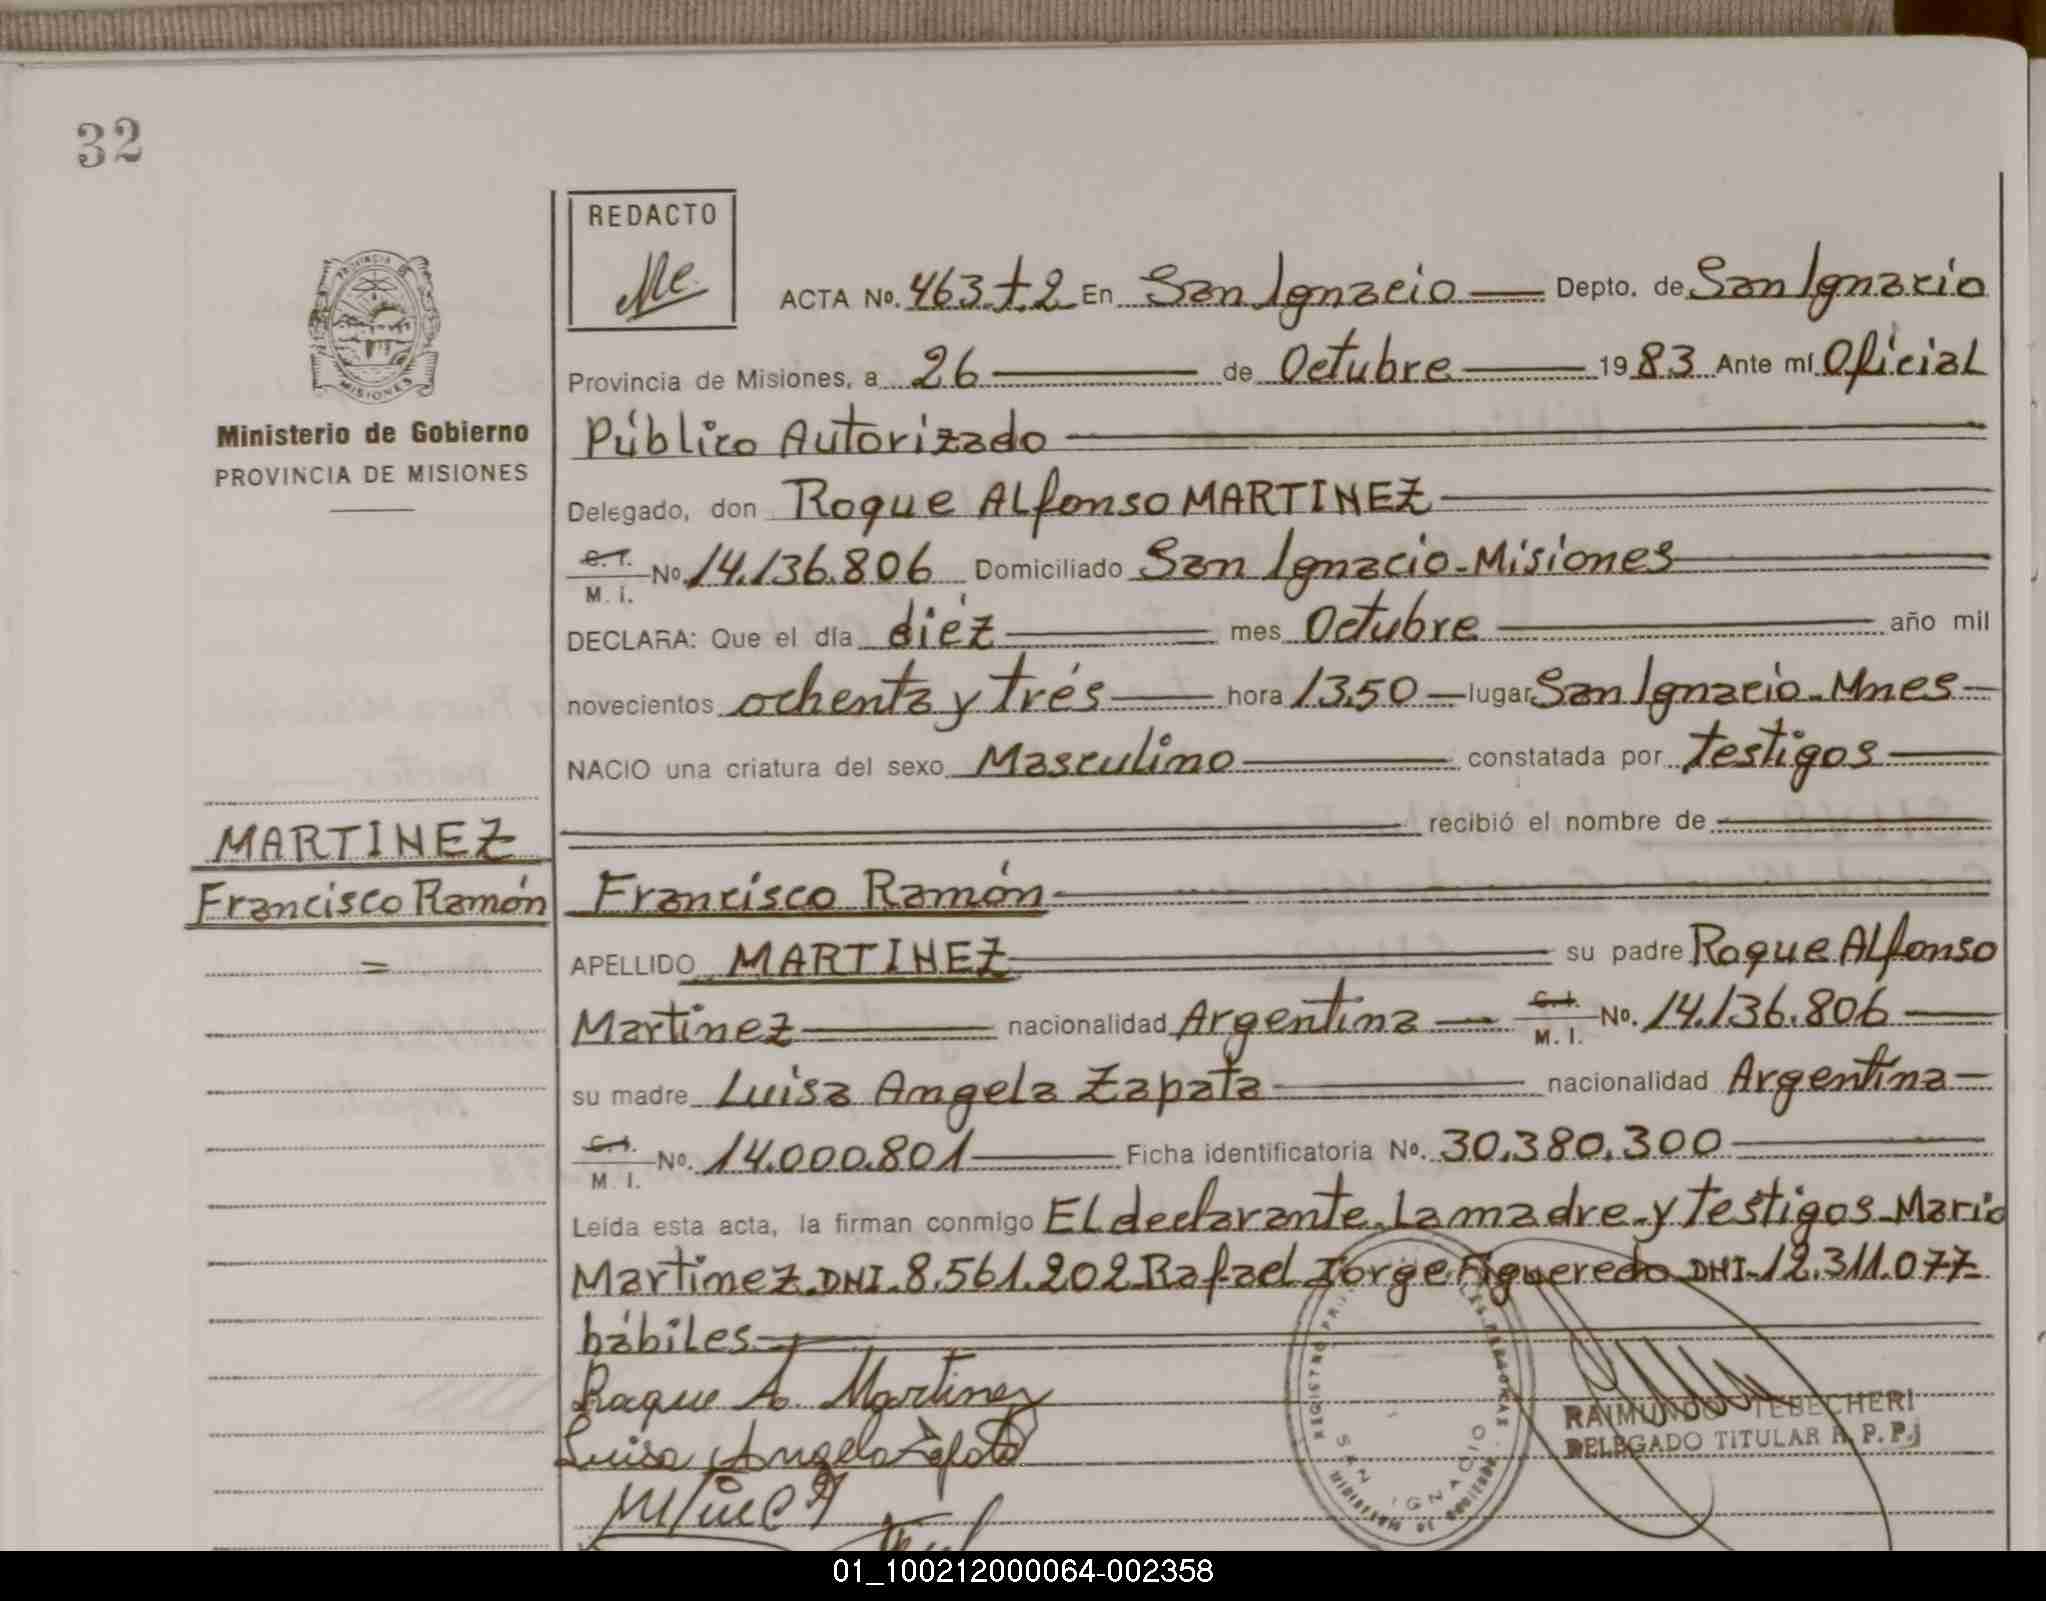 32
REDACTO
ACTA No. 463 t.2 En San Ignacio Depto. de San Ignacio
Provincia de Misiones, a 26 de Octubre 1983 Ante mí Oficial
Ministerio de Gobierno
PROVINCIA DE MISIONES
Público Autorizado
Delegado, don Roque Alfonso MARTINEZ
C. I. M. I. No. 14.136.806 Domiciliado San Ignacio-Misiones
DECLARA: Que el día diéz mes Octubre año mil
novecientos ochenta y trés hora 13,50 lugar San Ignacio-Mnes
NACIO una criatura del sexo Masculino constatada por testigos
recibió el nombre de
MARTINEZ
Francisco Ramón
=
Francisco Ramón
APELLIDO MARTINEZ su padre Roque Alfonso
Martinez nacionalidad Argentina C. I. M. I. No. 14.136.806
su madre Luisa Angela Zapata nacionalidad Argentina
C. I. M. I. No. 14.000.801 Ficha identificatoria No. 30.380.300
Leída esta acta, la firman conmigo El declarante-La madre-y testigos-Mario
Martinez-DNI-8.561.202 Rafael Jorge Figueredo DNI-12.311.077-
hábiles
Roque A. Martinez
Luisa Angela Zapata
SAN IGNACIO
RAIMUNDO TEBECHERI
DELEGADO TITULAR R. P. P.
01_100212000064-002358